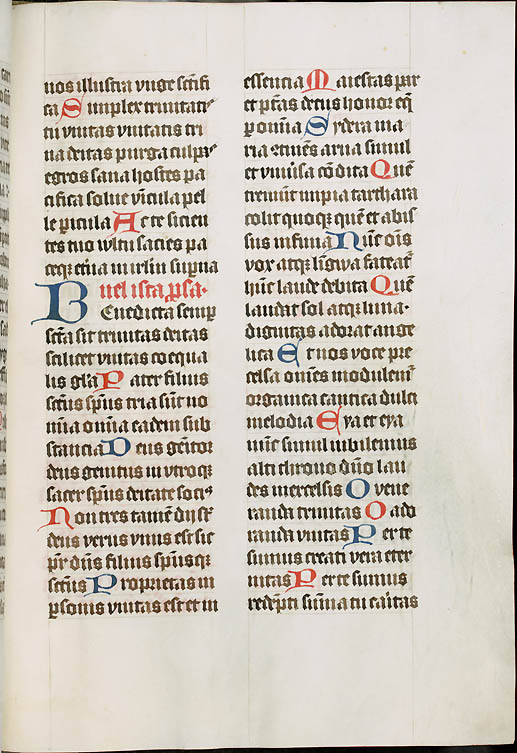 nos illustra vnge scīfi
ca Simplex trinitati
tu vnitas vnitatis tri
na deitas purga culpas
egros sana hostes pa
cifica solue vīcula pel
le picula Ac te sicien
tes tuo vultu sacies pa
ceqȝ et̄na in celis supna
Uel ista psa.
Benedicta semp
scā̄ sit trinitas deitas
scilicet vnitas coequa
lis gl̄a Pater filius
sctūs spūs tria sūt no
mīa omīa eadem sub
stancia Deus geītor
deus genitus in vtroqȝ
sacer spūs deitate soci9
Non tres tamē dij sȝ
deus verus vnus est sic
pr̄ dūs filius spūsqȝ
sctūs Proprietas in
psonis vnitas est et in
essencia Maiestas par
et ptās decus honor eq̄
p omīa Sydera ma
ria ꝯtinēs arua simul
et vniūsa cōdita Quē
tremūt impia tarthara
colit quoqȝ quē et abis
sus infima Nūc oīs
vox atqȝ lingwa fateat̄
hūc laude debita Quē
laudat sol atqȝ luna.
dignitas adorat ange
lica Et nos voce pre
celsa om̄es modulem̄
organica cantica dulci
melodia Eya et eya
nūc simul iubilemus
alti throno dūo lau
des in excelsis O vene
randa trinitas O ado
randa vnitas Per te
sumus creati vera eter
nitas Per te sumus
redēpti sūma tu caritas